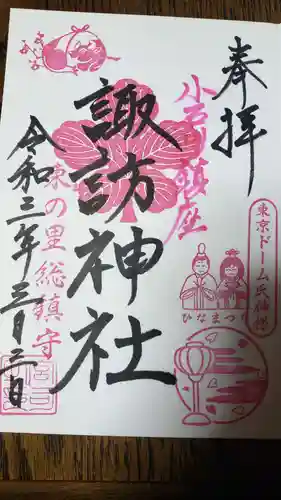 奉拝
東京ドーム氏神様
小石川鎮座
諏訪神社
ひなまつり
令和三年三月三日
の里総鎮守